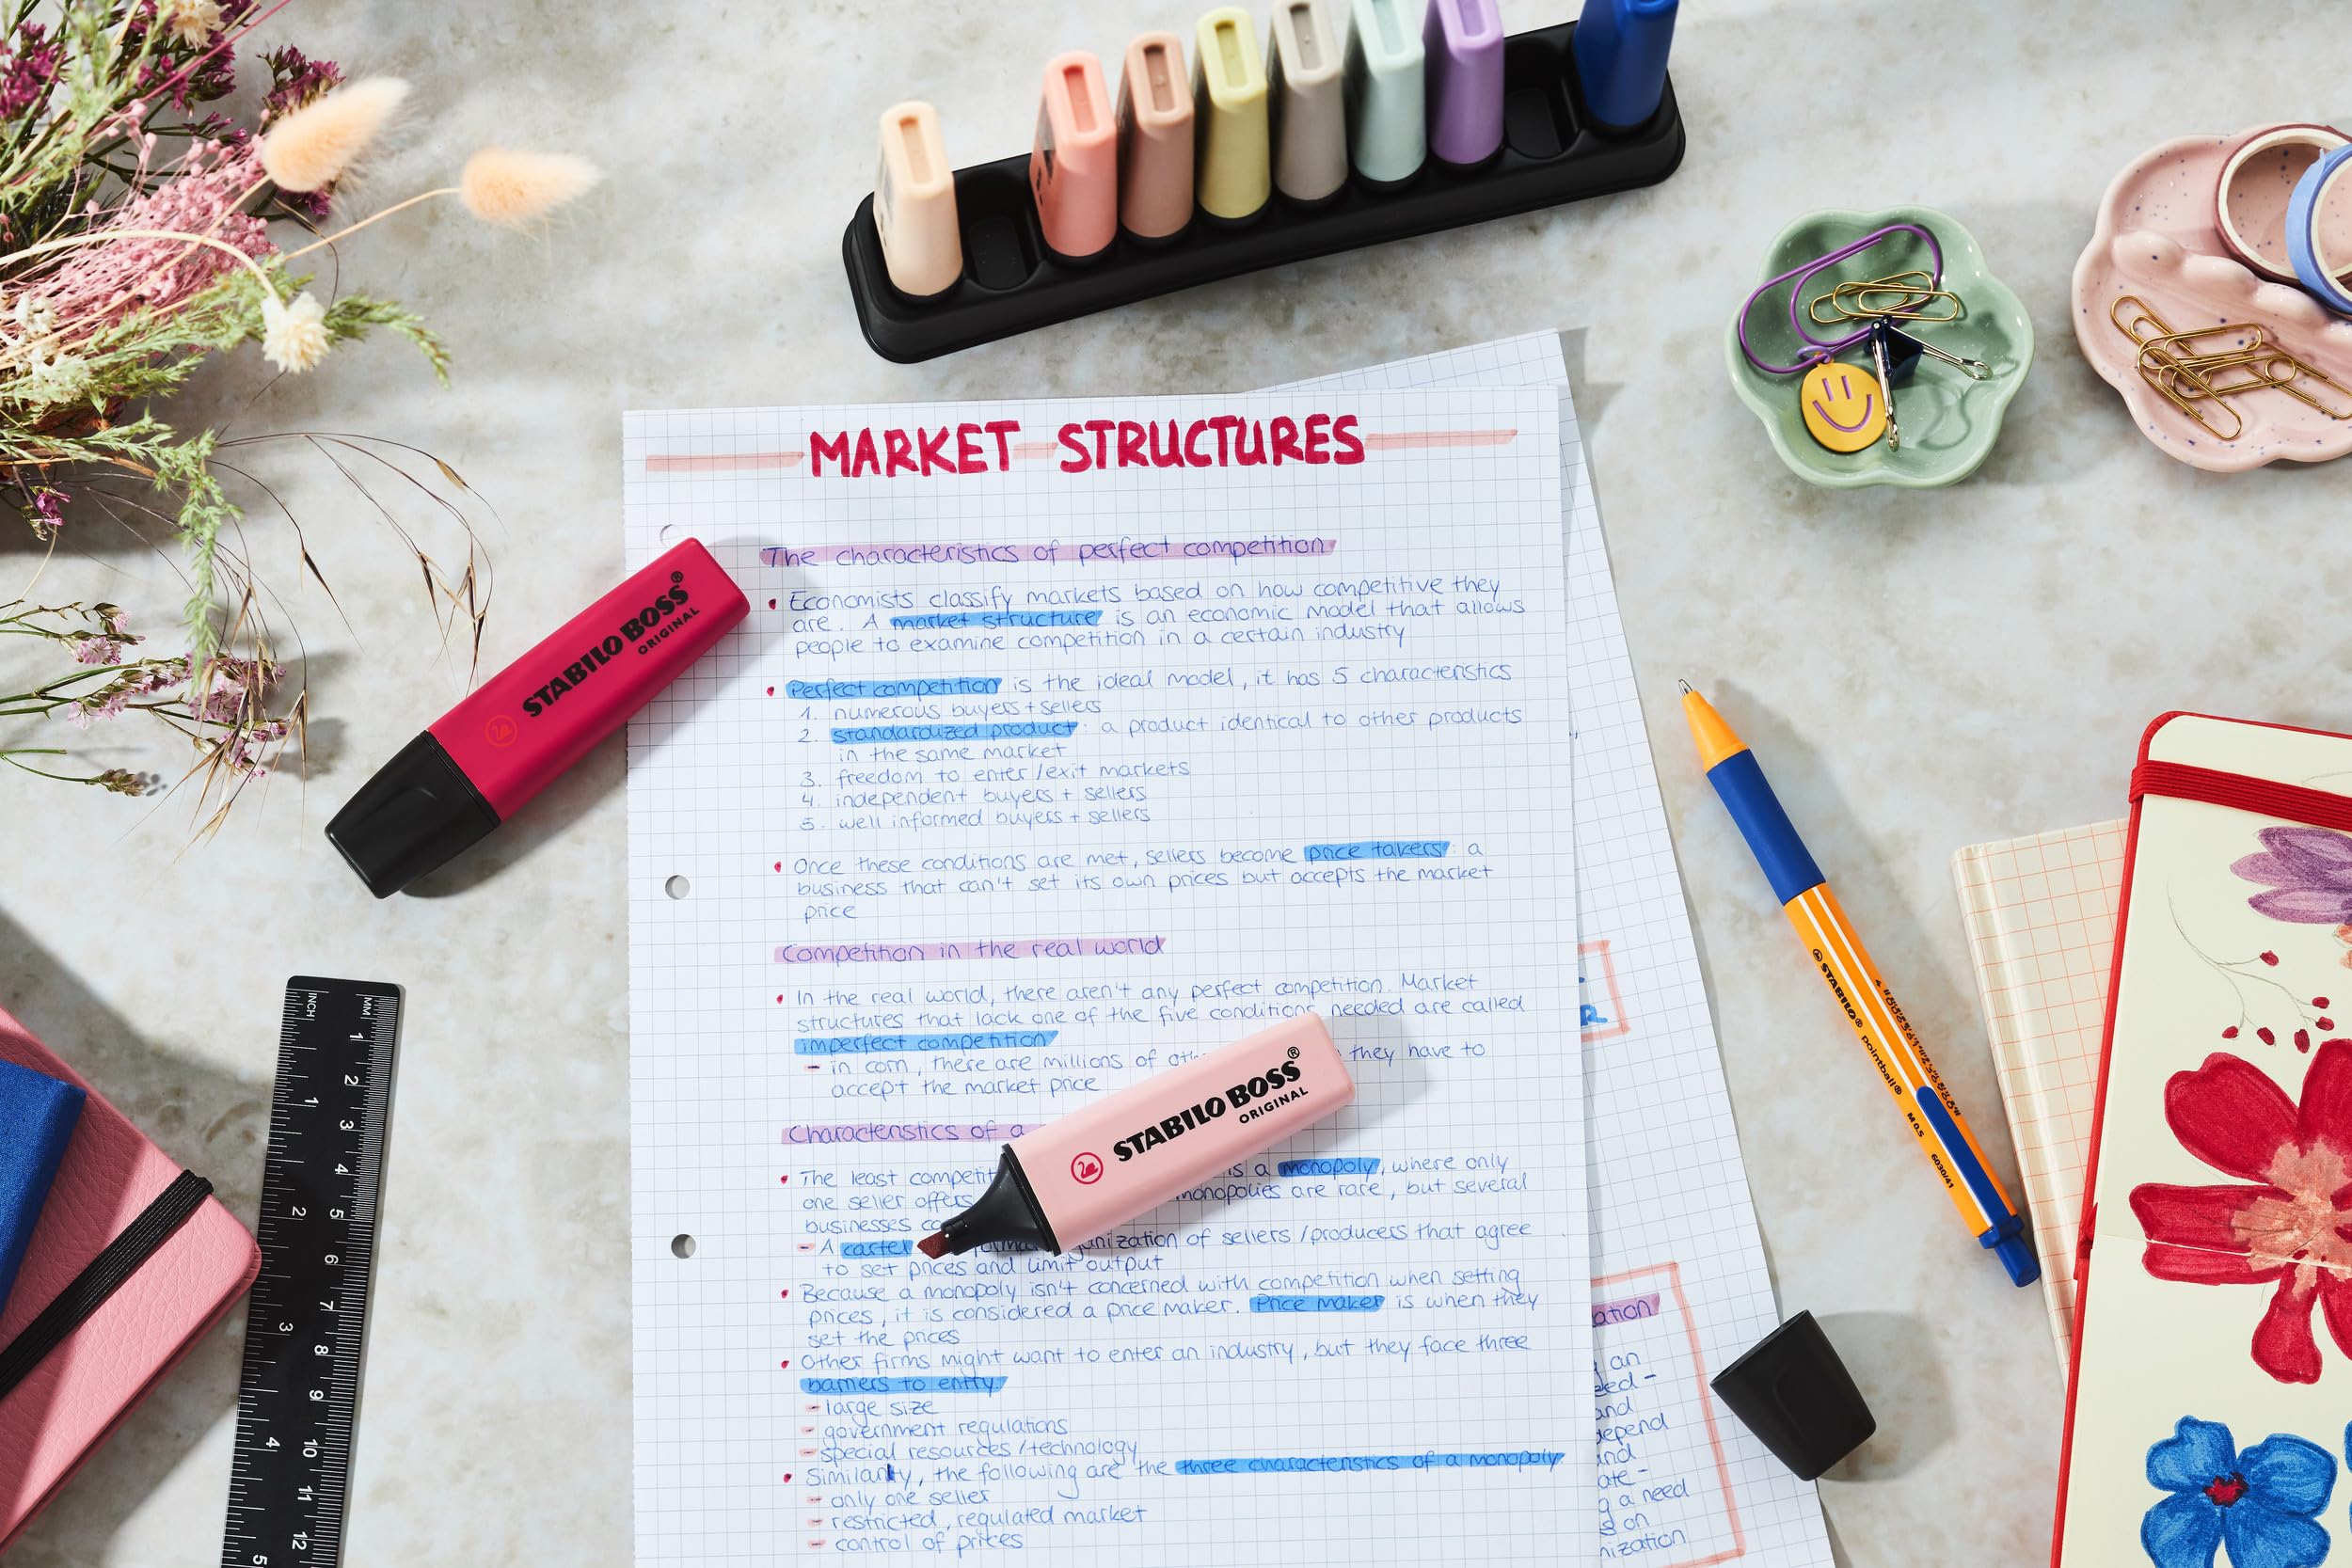 MARKET STRUCTURES
The characteristics of perfect competition
• Economists classify markets based on how competitive they
are. A market structure is an economic model that allows
people to examine competition in a certain industry
• Perfect competition is the ideal model, it has 5 characteristics
1. numerous buyers + sellers
2. standardized product: a product identical to other products
in the same market
3. freedom to enter/exit markets
4. independent buyers + sellers
5. well informed buyers + sellers
• Once these conditions are met, sellers become price takers: a
business that can't set its own prices but accepts the market
price
Competition in the real world
• In the real world, there aren't any perfect competition. Market
structures that lack one of the five conditions needed are called
imperfect competition
- in corn, there are millions of they have to
accept the market price
Characteristics of a
• The least is a monopoly, where only
one seller offers monopolies are rare, but several
businesses
- A cartel of sellers/producers that agree
to set prices and limit output
• Because a monopoly isn't concerned with competition when setting
prices, it is considered a price maker. Price maker is when they
set the prices
• Other firms might want to enter an industry, but they face three
barriers to entry
- large size
- government regulations
- special resources/technology
• Similarly, the following are the three characteristics of a monopoly:
- only one seller
- restricted, regulated market
- control of prices
STABILO BOSS®
ORIGINAL
STABILO BOSS®
ORIGINAL
STABILO® pointball® M 0.5 6030/41
INCH
MM
1 2 3 4 5 6 7 8 9 10 11 12
1 2 3 4 5
an
and
depend
and
a need
on